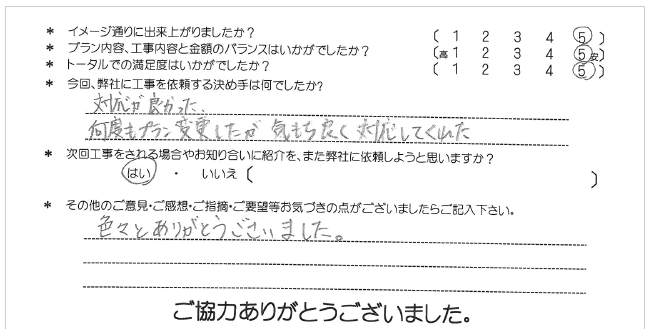 * イメージ通りに出来上がりましたか? ( 1 2 3 4 5 )
* プラン内容、工事内容と金額のバランスはいかがでしたか? (高 1 2 3 4 5 安)
* トータルでの満足度はいかがでしたか? ( 1 2 3 4 5 )
* 今回、弊社に工事を依頼する決め手は何でしたか?
対応が良かった、
何度もプラン変更したが 気もち良く対応してくれた
* 次回工事をされる場合やお知り合いに紹介を、また弊社に依頼しようと思いますか?
はい ・ いいえ ( )
* その他のご意見・ご感想・ご指摘・ご要望等お気づきの点がございましたらご記入下さい。
色々とありがとうございました。
ご協力ありがとうございました。